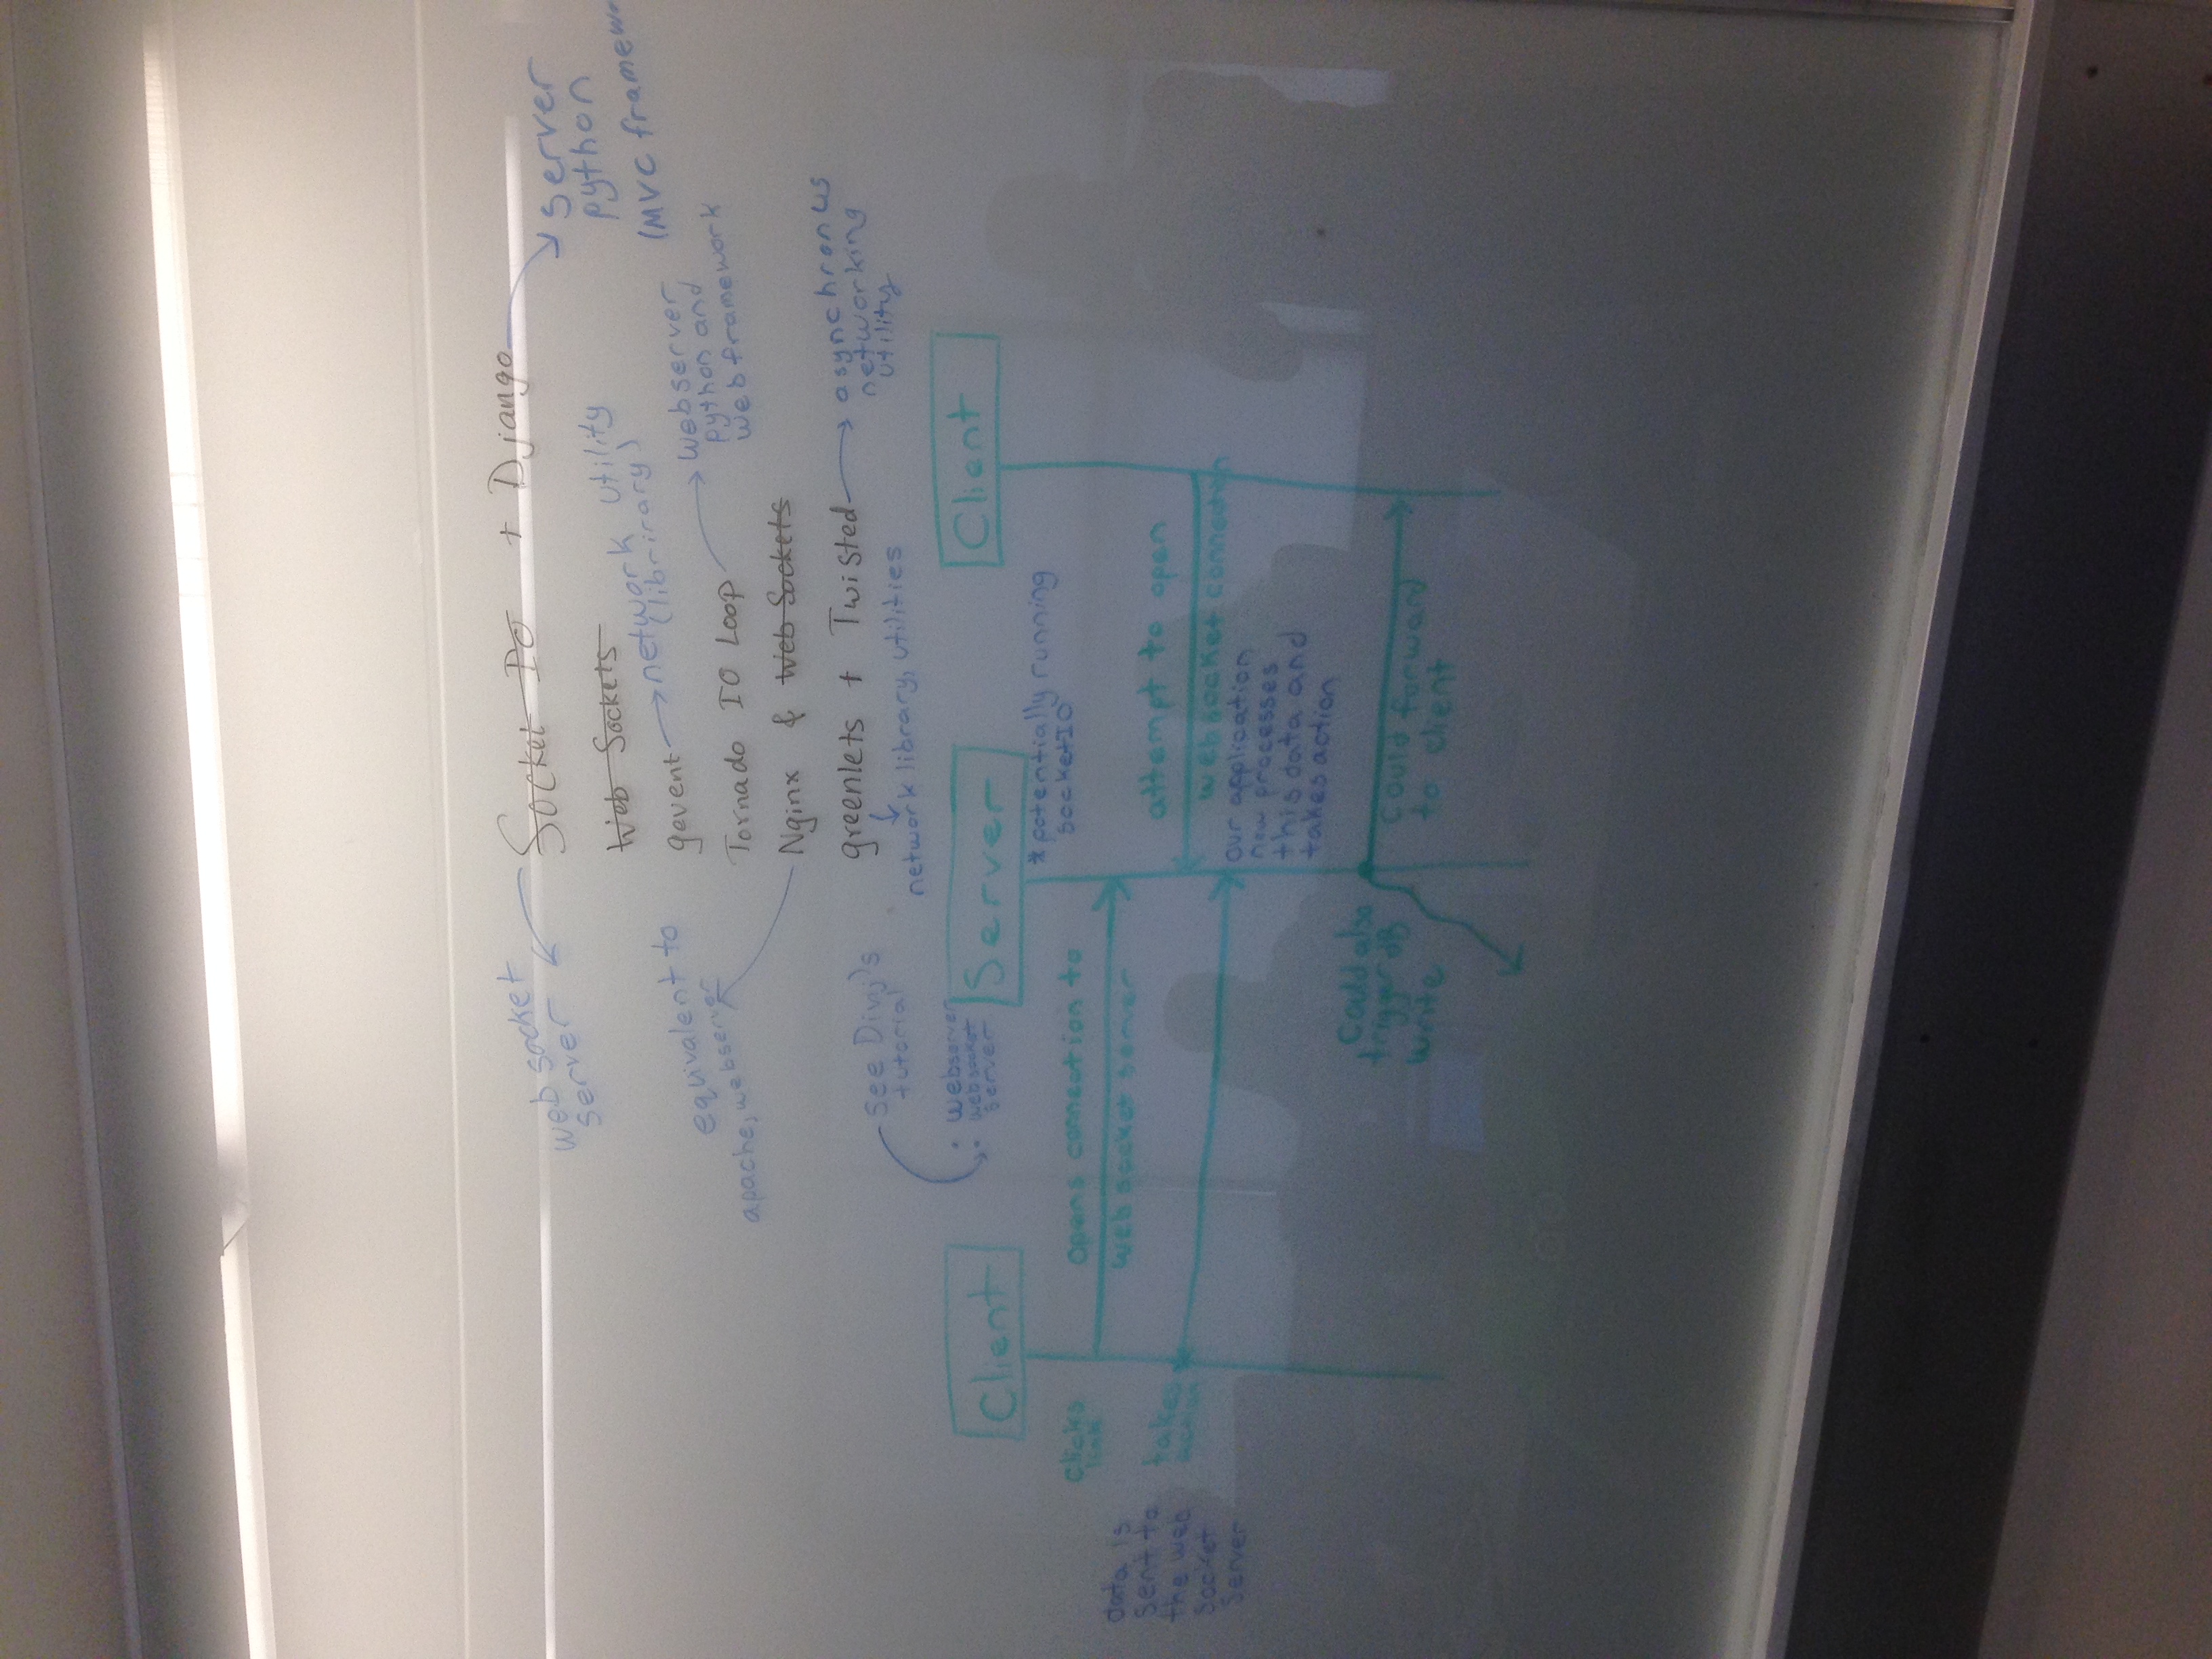 web socket
server
Socket IO + Django
server
python
(MVC framewo
Web Sockets
gevent
network utility
(librirary)
equivalent to
apache, webserver
Tornado IO Loop
webserver
python and
web framework
Nginx & Web Sockets
greenlets + Twisted
asynchronus
networking
utility
network library, utilities
see Divij's
tutorial
• webserver
• websocket
server
Client
Server
Client
* potentially running
socketIO
clicks
link
opens connection to
web socket server
data is
sent to
the web
socket
server
takes
action
attempt to open
websocket connection
our application
now processes
this data and
takes action
Could also
trigger DB
write
Could forward
to client